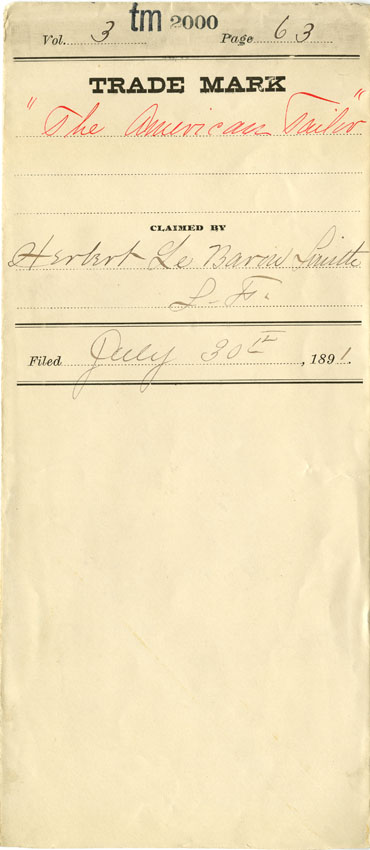 tm 2000
Vol. 3 Page 63
TRADE MARK
"The American Tailor"
CLAIMED BY
Herbert Le Baron Smith
S. F.
Filed July 30th, 1891.